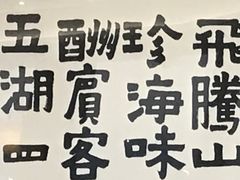 飛騰山
珍海味
酬賓客
五湖四